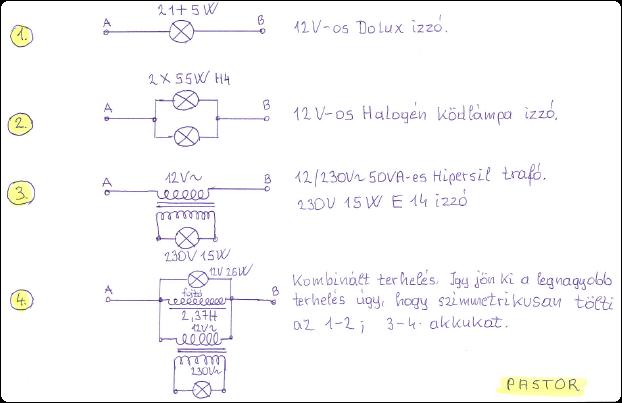 21+5W
A
B
1.
12V-os Dolux izzó.
2 X 55W H4
A
B
2.
12V-os Halogén ködlámpa izzó.
12V~
A
B
3.
12/230V~ 50VA-es Hipersil trafó.
230V 15W E 14 izzó
230V 15W
12V 25W
fojtó
A
B
4.
2,37H
12V~
230V~
Kombinált terhelés. Így jön ki a legnagyobb
terhelés úgy, hogy szimmetrikusan tölti
az 1-2; 3-4. akkukat.
PASTOR